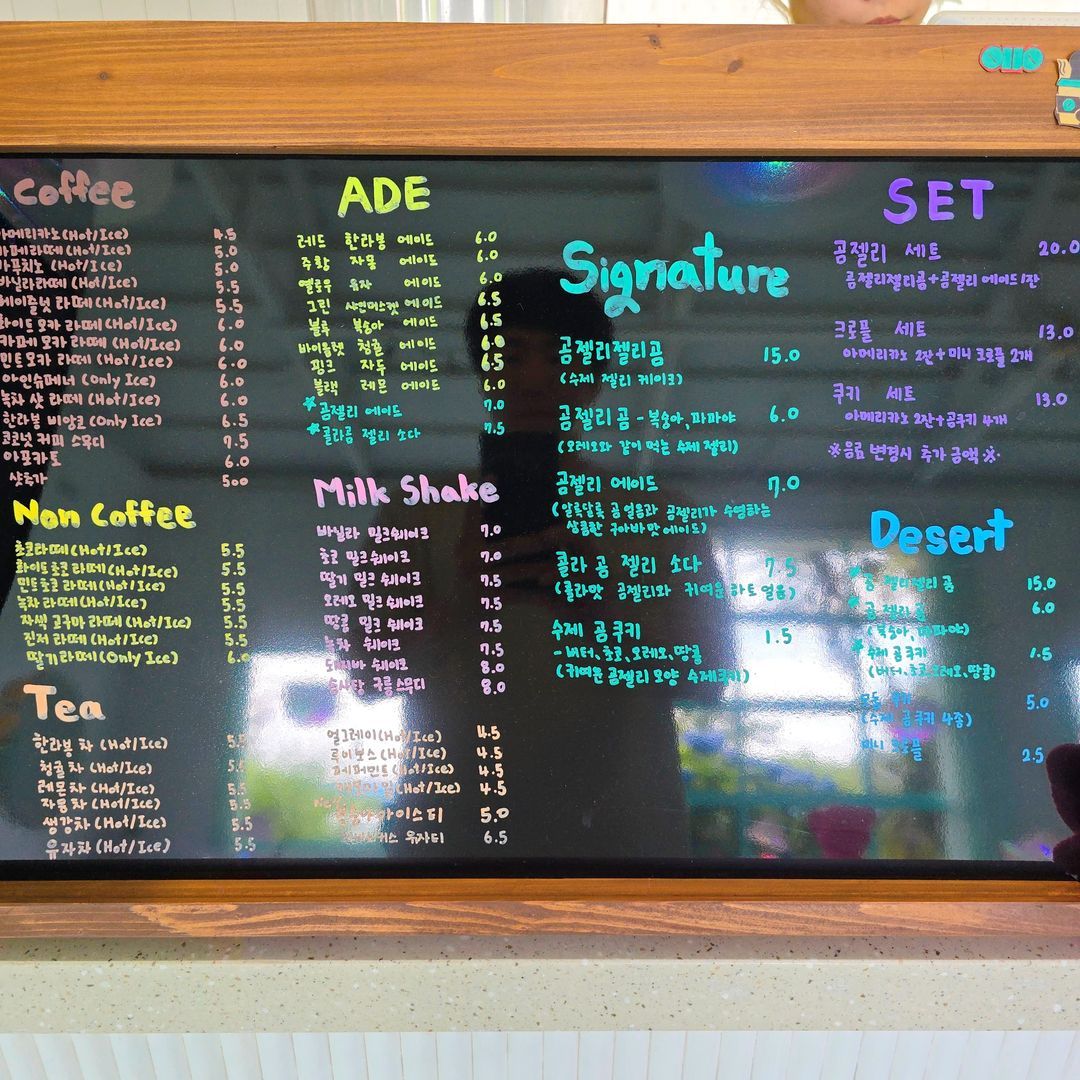 Coffee
아메리카노(Hot/Ice) 4.5
카페라떼(Hot/Ice) 5.0
카푸치노 (Hot/Ice) 5.0
바닐라라떼 (Hot/Ice) 5.5
헤이즐넛 라떼 (Hot/Ice) 5.5
화이트 모카 라떼(Hot/Ice) 6.0
카페 모카 라떼 (Hot/Ice) 6.0
민트모카 라떼(Hot/Ice) 6.0
아인슈페너 (Only Ice) 6.0
녹차 샷 라떼 (Hot/Ice) 6.0
한라봉 비앙코 (Only Ice) 6.5
코코넛 커피 스무디 7.5
아포카토 6.0
샷추가 500
Non Coffee
초코라떼(Hot/Ice) 5.5
화이트초코 라떼(Hot/Ice) 5.5
민트초코 라떼(Hot/Ice) 5.5
녹차라떼(Hot/Ice) 5.5
자색 고구마 라떼(Hot/Ice) 5.5
진저 라떼(Hot/Ice) 5.5
딸기라떼(Only Ice) 6.0
Tea
한라봉 차 (Hot/Ice) 5.5
청귤차 (Hot/Ice) 5.5
레몬차 (Hot/Ice) 5.5
자몽차 (Hot/Ice) 5.5
생강차 (Hot/Ice) 5.5
유자차 (Hot/Ice) 5.5
ADE
레드 한라봉 에이드 6.0
주황 자몽 에이드 6.0
옐로우 유자 에이드 6.0
그린 샤인머스켓 에이드 6.5
블루 복숭아 에이드 6.5
바이올렛 청귤 에이드 6.0
핑크 자두 에이드 6.5
블랙 레몬 에이드 6.0
곰젤리 에이드 7.0
콜라곰 젤리 소다 7.5
Milk Shake
바닐라 밀크쉐이크 7.0
초코 밀크쉐이크 7.0
딸기 밀크 쉐이크 7.5
오레오 밀크 쉐이크 7.5
땅콩 밀크 쉐이크 7.5
녹차 쉐이크 7.5
돼지바 쉐이크 8.0
솜사탕 구름스무디 8.0
얼그레이(Hot/Ice) 4.5
루이보스(Hot/Ice) 4.5
페퍼민트(Hot/Ice) 4.5
(Hot/Ice) 4.5
아이스티 5.0
유자티 6.5
Signature
곰젤리젤리곰 15.0
(수제 젤리 케이크)
곰젤리 곰 - 복숭아, 파파야 6.0
(오레오와 같이 먹는 수제 젤리)
곰젤리 에이드 7.0
(알록달록 곰얼음과 곰젤리가 수영하는
상콤한 구아바맛 에이드)
콜라 곰 젤리 소다 7.5
(콜라맛 곰젤리와 귀여운 하트 얼음)
수제 곰쿠키 1.5
- 버터, 초코, 오레오, 땅콩
(귀여운 곰젤리 모양 수제쿠키)
SET
곰젤리 세트 20.0
곰젤리젤리곰+곰젤리 에이드 1잔
크로플 세트 13.0
아메리카노 2잔+미니 크로플 2개
쿠키 세트 13.0
아메리카노 2잔+곰쿠키 4개
※음료 변경시 추가 금액※
Desert
곰 젤리젤리 곰 15.0
곰 젤리 곰 6.0
(복숭아, 파파야)
수제 곰쿠키 1.5
(버터, 초코, 오레오, 땅콩)
모둠 쿠키 5.0
(수제 곰쿠키 4종)
미니 크로플 2.5